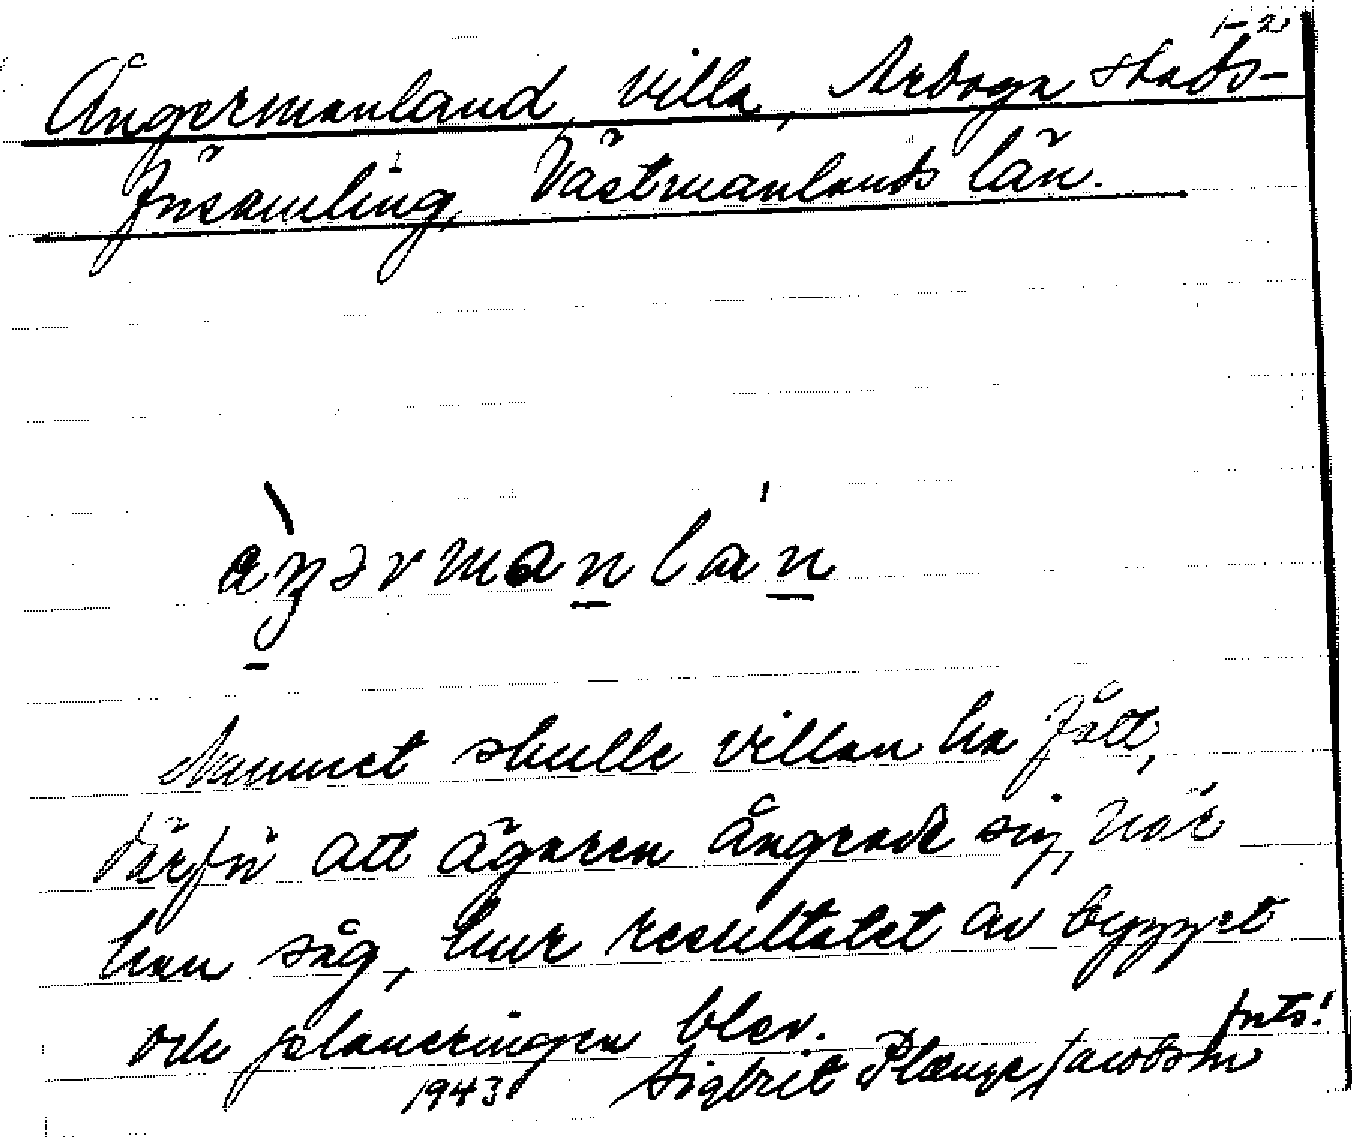 1-2
Ångermanland, villa, Arboga stads-
församling, Västmanlands län.
àŋərmanlán
Namnet skulle villan ha fått,
därför att ägaren ångrade sig, när
han såg, hur resultatet av bygget
och planeringen blev. forts!
1943 Sigbrit Plænge Jacobson